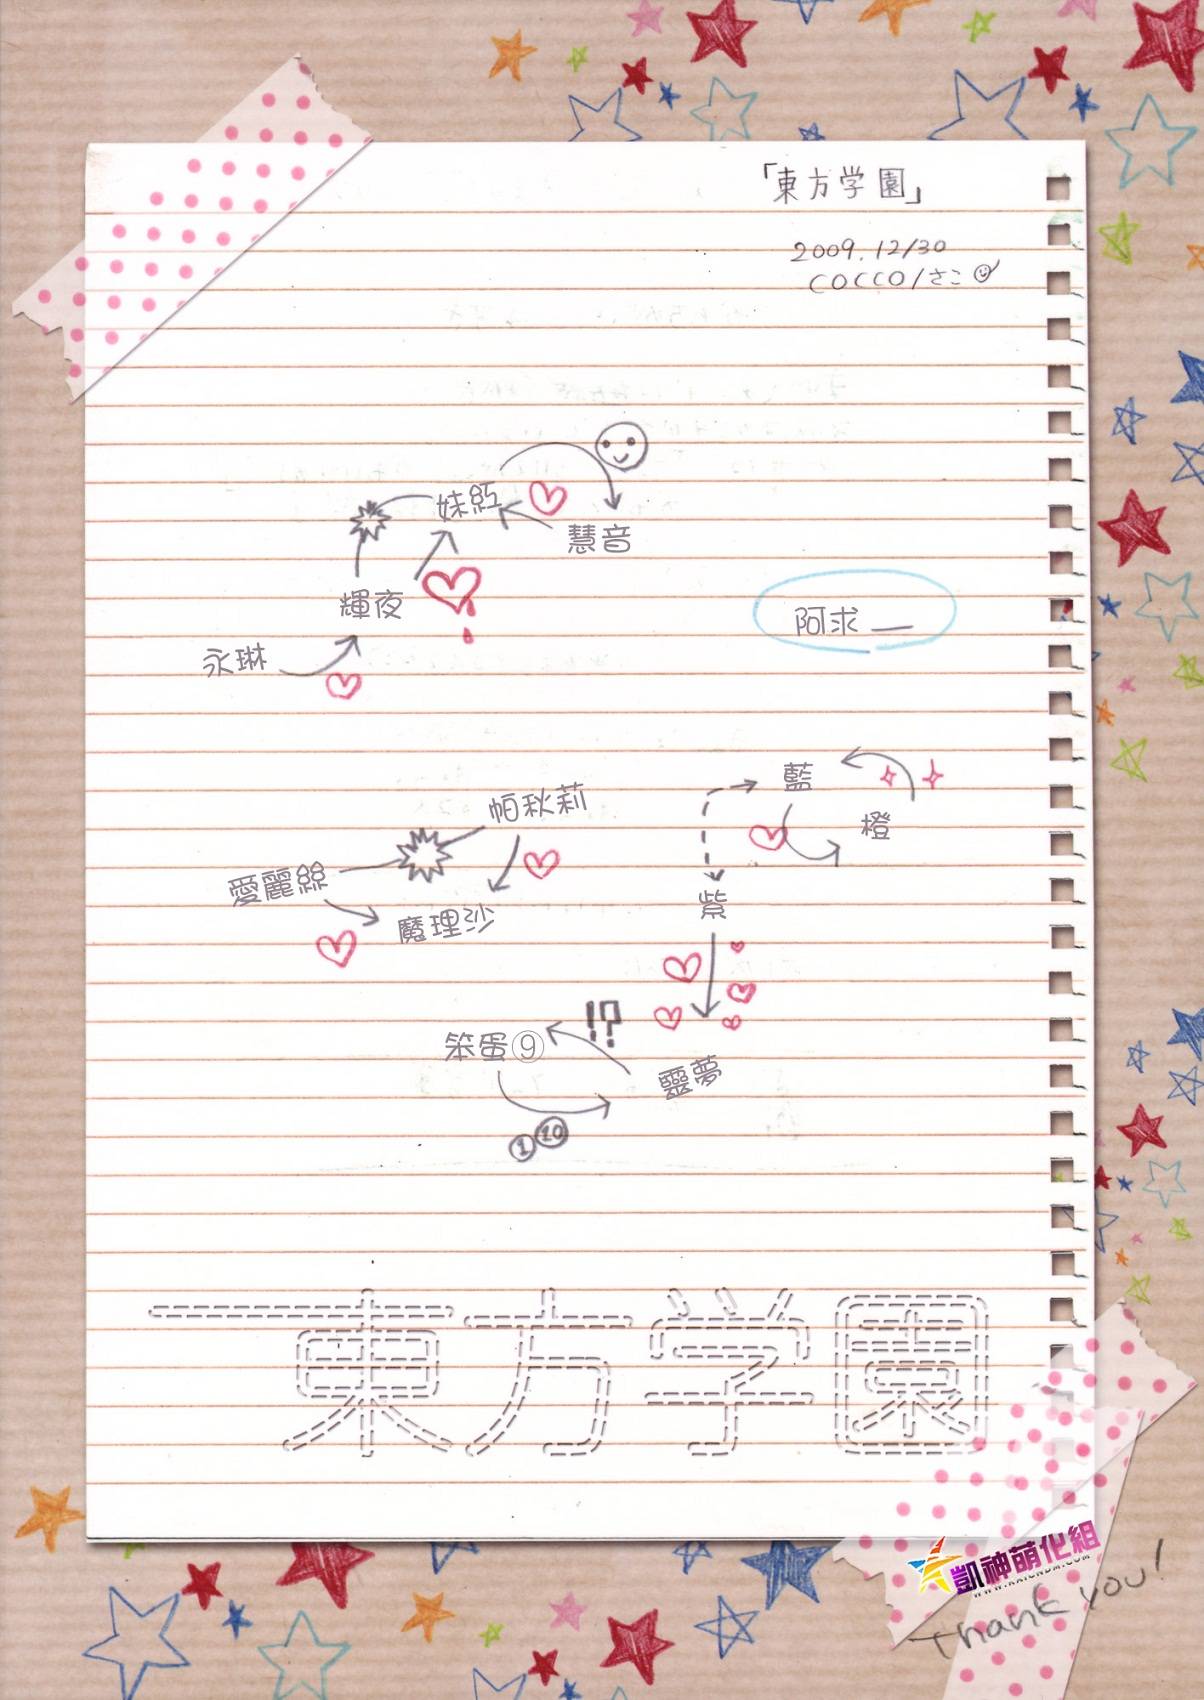 「東方学園」
2009.12/30
COCCO/さこ
妹紅
慧音
輝夜
永琳
阿求
藍
橙
帕秋莉
愛麗絲
魔理沙
紫
!?
笨蛋⑨
靈夢
① ⑩
東方学園
凱神萌化組
WWW.KAISNDM.COM
Thank you!